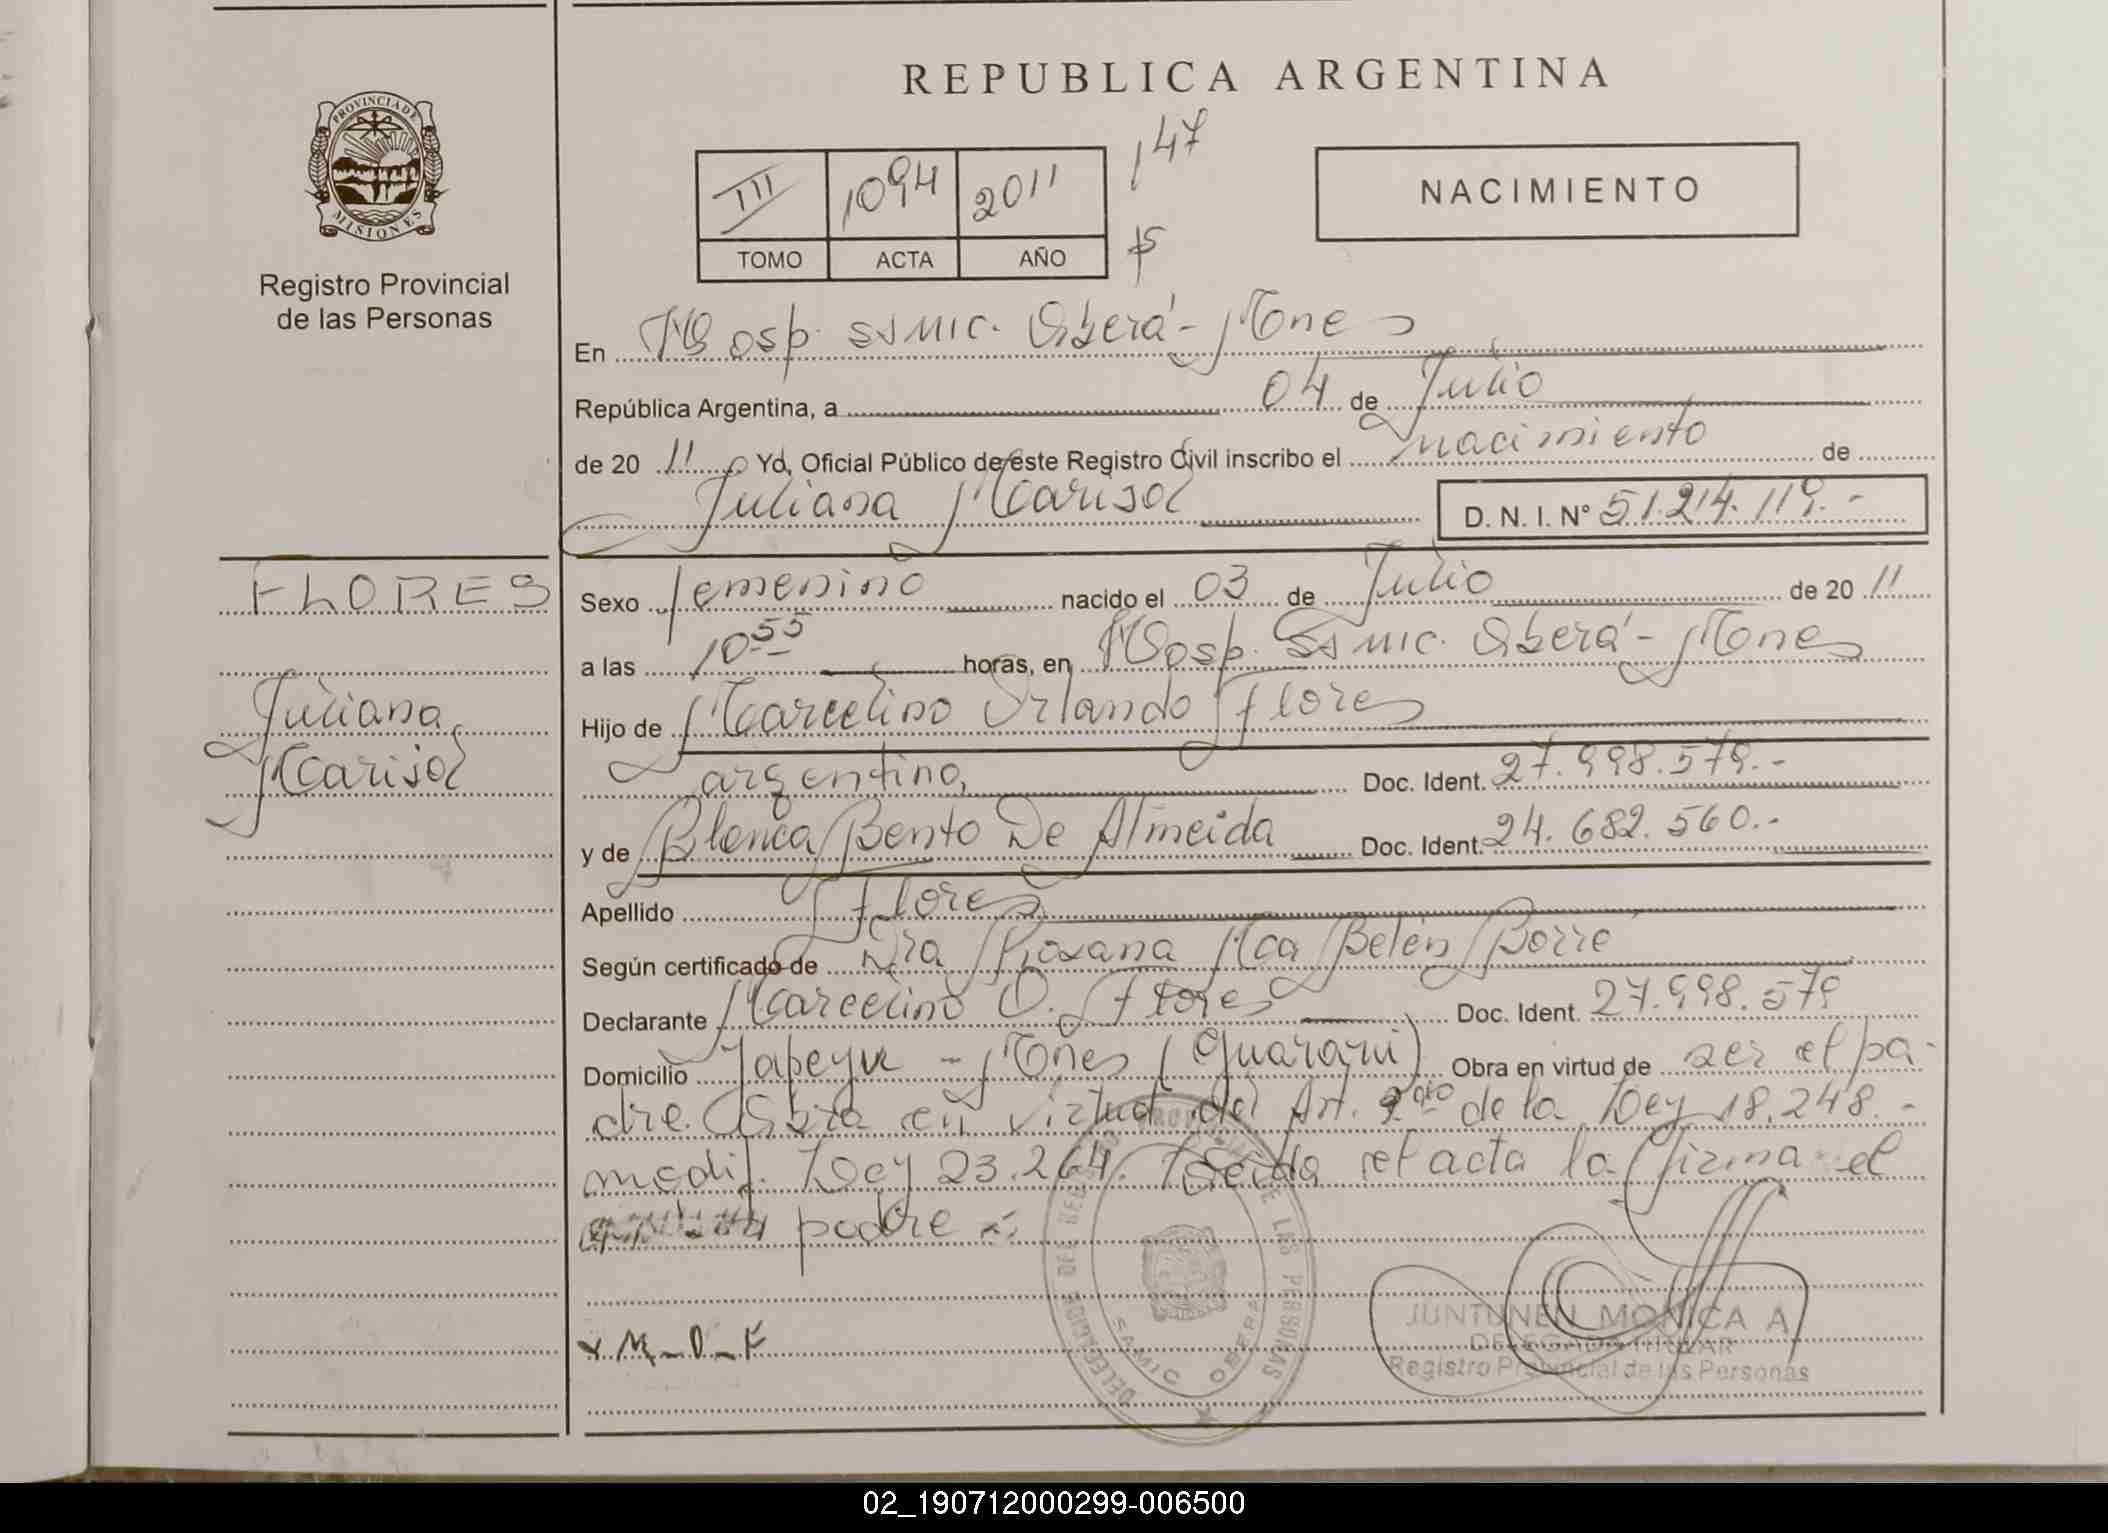 REPUBLICA ARGENTINA
PROVINCIA DE
MISIONES
Registro Provincial
de las Personas
III 1094 2011
TOMO ACTA AÑO
147
NACIMIENTO
En Hosp. SAMIC. Oberá - Mones
República Argentina, a 04 de Julio
de 20 11 Yo, Oficial Público de este Registro Civil inscribo el nacimiento de
Juliana Marisol
D. N. I. N° 51.214.119.-
FLORES
Juliana
Marisol
Sexo femenino nacido el 03 de Julio de 20 11
a las 10 55 horas, en Hosp. SAMIC. Oberá - Mones
Hijo de Marcelino Orlando Flores
argentino, Doc. Ident. 27.998.579.-
y de Blanca Bento De Almeida Doc. Ident. 24.682.560.-
Apellido Flores
Según certificado de Dra Roxana Mca Belén Borré
Declarante Marcelino O. Flores Doc. Ident. 27.998.579
Domicilio Yapeyu - Mones (Guarani) Obra en virtud de ser el pa-
dre. Obra en virtud del Art. de la Ley 18.248.-
modif. Ley 23.264. Leida el acta la firma el
padre
x M_O_F
SAMIC OBERA
JUNTUNEN MONICA A
DELEGADA TITULAR
Registro Provincial de las Personas
02_190712000299-006500